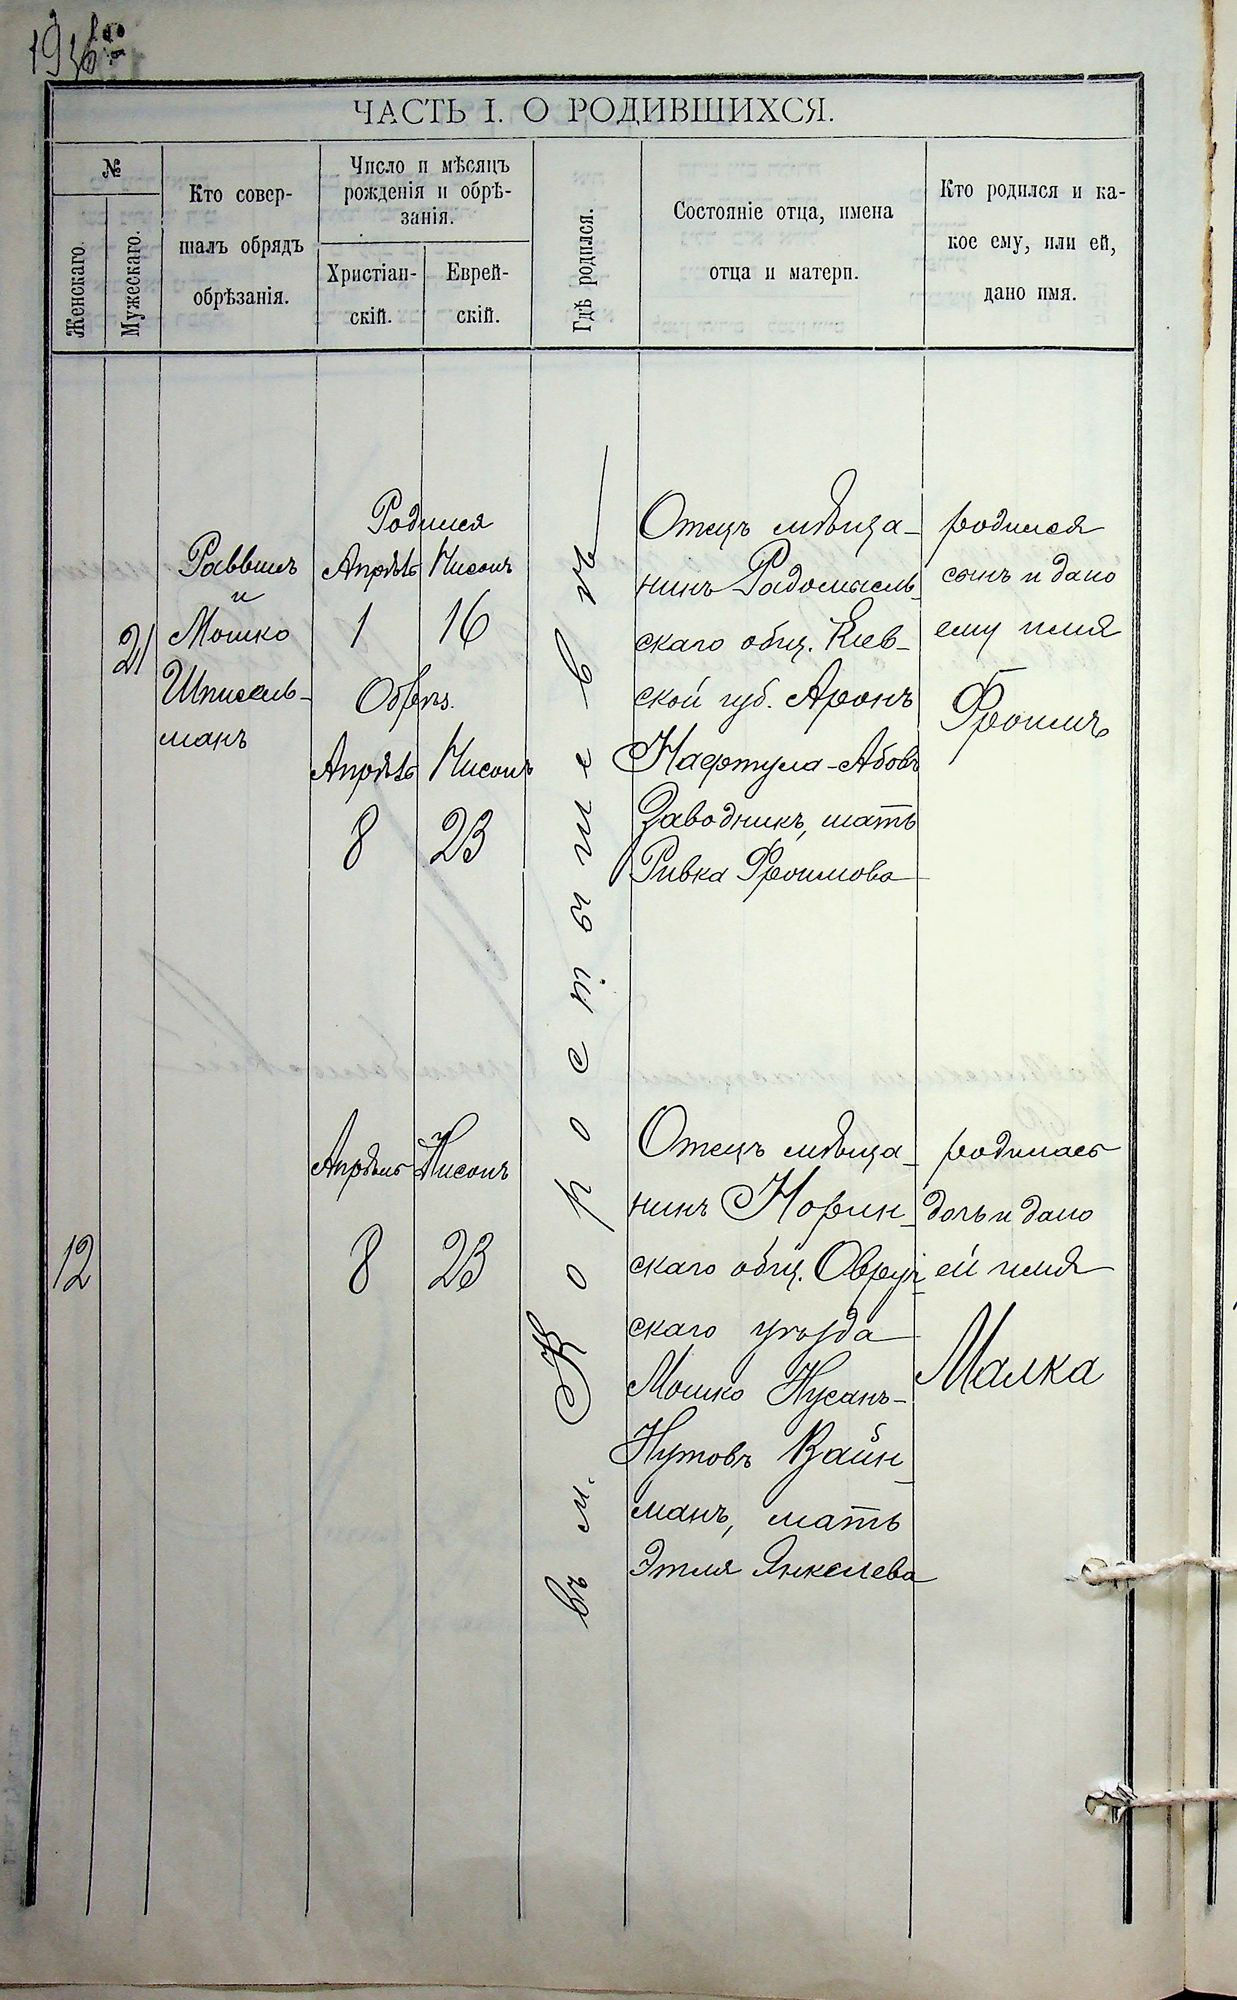 ЧАСТЬ I. О РОДИВШИХСЯ.
№
Женскаго.
Мужескаго.
Кто совер-
шалъ обрядъ
обрѣзанія.
Число и мѣсяцъ
рожденія и обрѣ-
занія.
Христіан-
скій.
Еврей-
скій.
Гдѣ родился.
Состояніе отца, имена
отца и матери.
Кто родился и ка-
кое ему, или ей,
дано имя.
21
Раввинъ
и
Мошко
Шписель-
манъ
Родился
Апрѣль Нисонъ
1 16
Обрѣз.
Апрѣль Нисонъ
8 23
въ м. Коростышевѣ
Отецъ мѣща-
нинъ Радомысль-
скаго общ. Кіев-
ской губ. Аронъ
Нафтула-Абовъ
Заводникъ, мать
Ривка Фроимова
родился
сынъ и дано
ему имя
Фроимъ
12
Апрѣль Нисонъ
8 23
Отецъ мѣща-
нинъ Норин-
скаго общ. Овруч-
скаго уѣзда
Мошко Нусанъ-
Нутовъ Вайн-
манъ, мать
Этля Янкелева
родилась
дочь и дано
ей имя
Малка